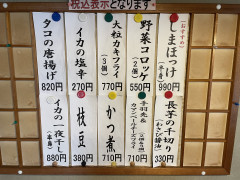 税込表示となります
おすすめ
しまほっけ
990円
野菜コロッケ
(2個)
550円
大粒カキフライ
(3個)
770円
イカの塩辛
270円
タコの唐揚げ
820円
長芋の千切り
(わさび醤油)
330円
手羽先&
カマンベールチーズフライ
710円
かつ煮
710円
枝豆
380円
イカの一夜干し
880円